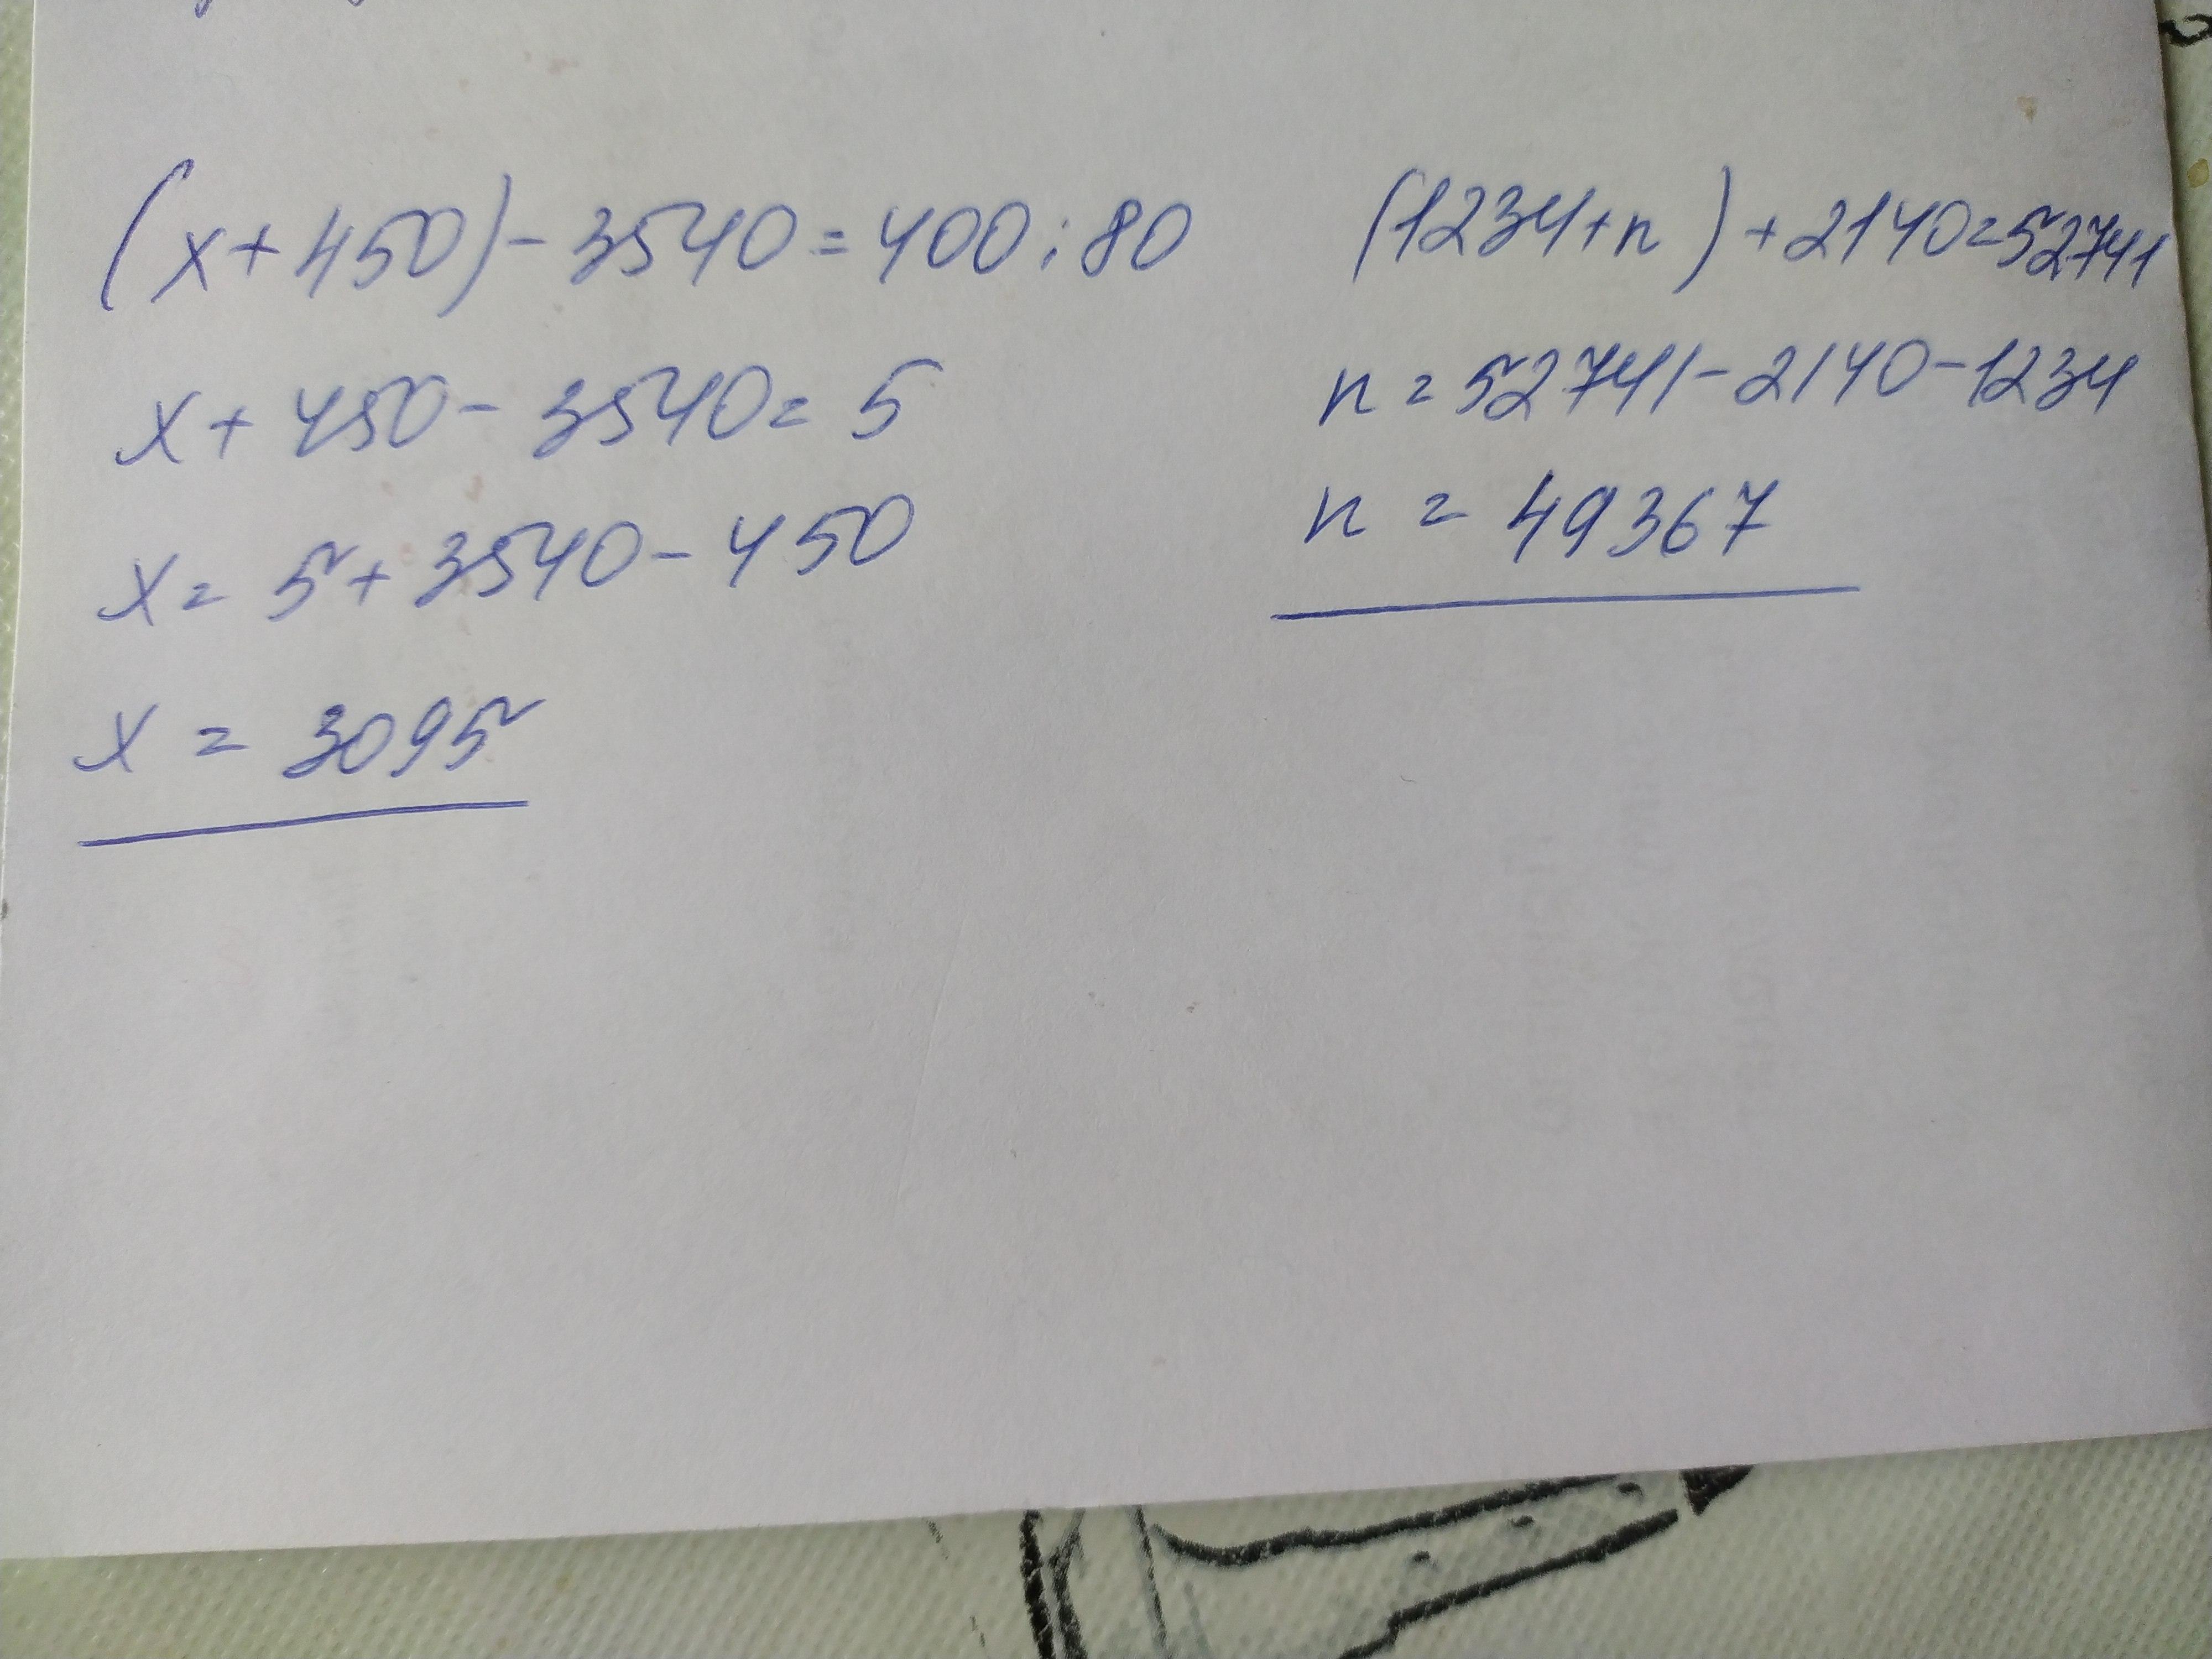 (x+450)-3540=400:80
x+450-3540=5
x=5+3540-450
x=3095
(1234+n)+2140=52741
n=52741-2140-1234
n=49367